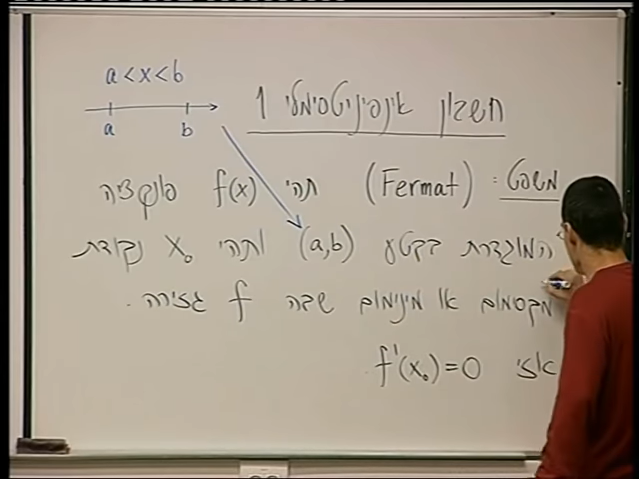 a < x < b
a b
חשבון אינפיניטסימלי 1
משפט: (Fermat) תהי f(x) פונקציה
המוגדרת בקטע (a,b) ותהי x₀ נקודת
מקסימום או מינימום שבה f גזירה.
אזי f'(x₀)=0